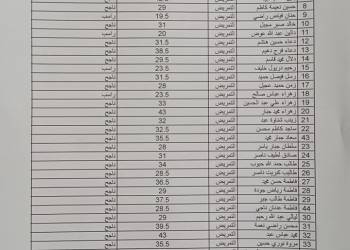 8 حسين نعيمة كاظم التمريض 29 ناجح
9 حنان فياض راضي التمريض 19.5 راسب
10 خالد صبر سجيل التمريض 31 ناجح
11 دالين عبد الله عوض التمريض 20 راسب
12 دعاء حسين هاشم التمريض 31.5 ناجح
13 دعاء فرج دهيم التمريض 38.5 ناجح
14 دلال محمد قاسم التمريض 29.5 ناجح
15 رحيم دريول خليف التمريض 19.5 راسب
16 رسل فيصل حميد التمريض 31.5 ناجح
17 زمن حميد سجيل التمريض 28 ناجح
18 زهراء عباس صالح التمريض 23.5 راسب
19 زهراء علي عبد الحسين التمريض 33 ناجح
20 زهراء محمد جبار التمريض 43 ناجح
21 زينب شناوة عبد التمريض 32 ناجح
22 ساجد كاظم محسن التمريض 32.5 ناجح
23 سعاد جبار محمد التمريض 35.5 ناجح
24 سلطان جبار ياسر التمريض 28 ناجح
25 صادق لطيف ناصر التمريض 31 ناجح
26 طالب حمد الله حبوب التمريض 34 ناجح
27 طالب كبريت ناصر التمريض 25.5 ناجح
28 فاطمة حسن محمد التمريض 37.5 ناجح
29 فاطمة رياض جودة التمريض 29 ناجح
28 فاطمة طالب جبر التمريض 37.5 ناجح
29 فاطمة عدنان ناجي التمريض 28.5 ناجح
30 ليالي عبد الله رحيم التمريض 29 ناجح
31 محسن راضي نعمة التمريض 39.5 ناجح
32 محمد عباس عبد التمريض 43 ناجح
33 مروة نوري حسين التمريض 35.5 ناجح